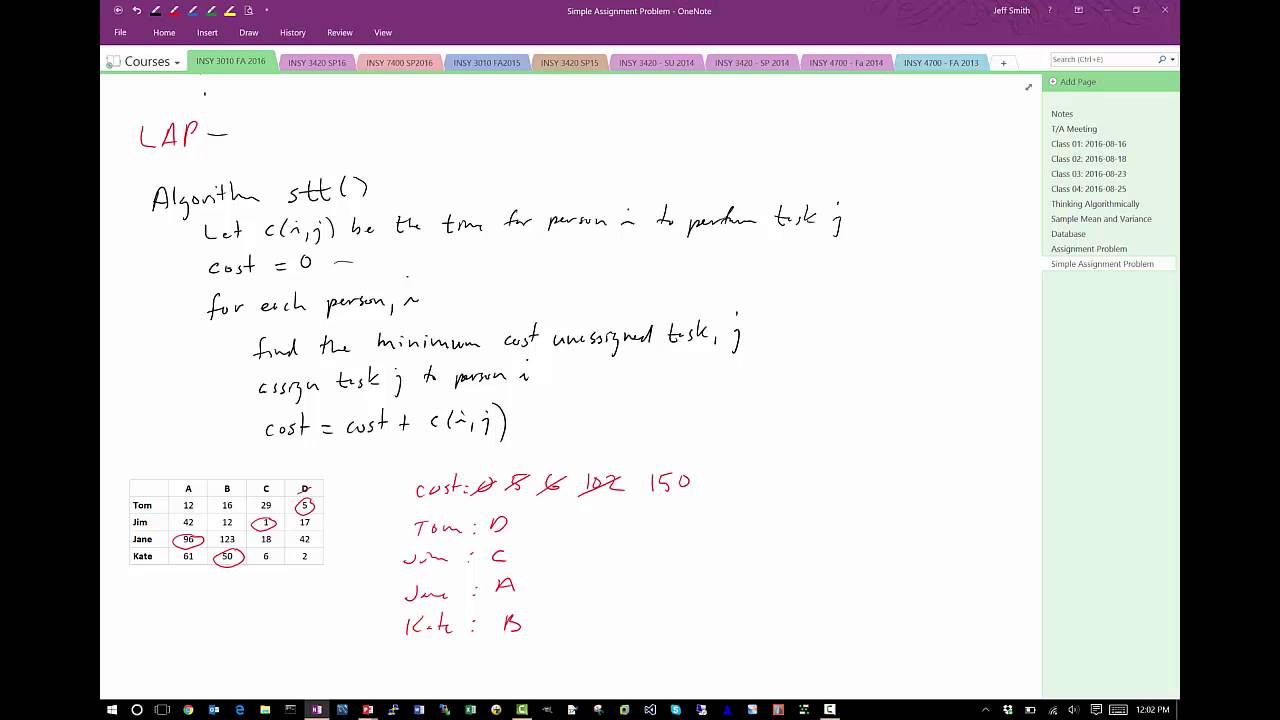 Simple Assignment Problem - OneNote
Jeff Smith
?
File Home Insert Draw History Review View
Courses
INSY 3010 FA 2016
INSY 3420 SP16
INSY 7400 SP2016
INSY 3010 FA2015
INSY 3420 SP15
INSY 3420 - SU 2014
INSY 3420 - SP 2014
INSY 4700 - Fa 2014
INSY 4700 - FA 2013
+
Search (Ctrl+E)
Add Page
Notes
T/A Meeting
Class 01: 2016-08-16
Class 02: 2016-08-18
Class 03: 2016-08-23
Class 04: 2016-08-25
Thinking Algorithmically
Sample Mean and Variance
Database
Assignment Problem
Simple Assignment Problem
LAP -
Algorithm stt()
Let c(i,j) be the time for person i to perform task j
cost = 0 -
for each person, i
find the minimum cost unassigned task, j
assign task j to person i
cost = cost + c(i,j)
A B C D
Tom 12 16 29 5
Jim 42 12 1 17
Jane 96 123 18 42
Kate 61 50 6 2
cost: 0 5 6 102 150
Tom : D
Jim : C
Jane : A
Kate : B
12:02 PM